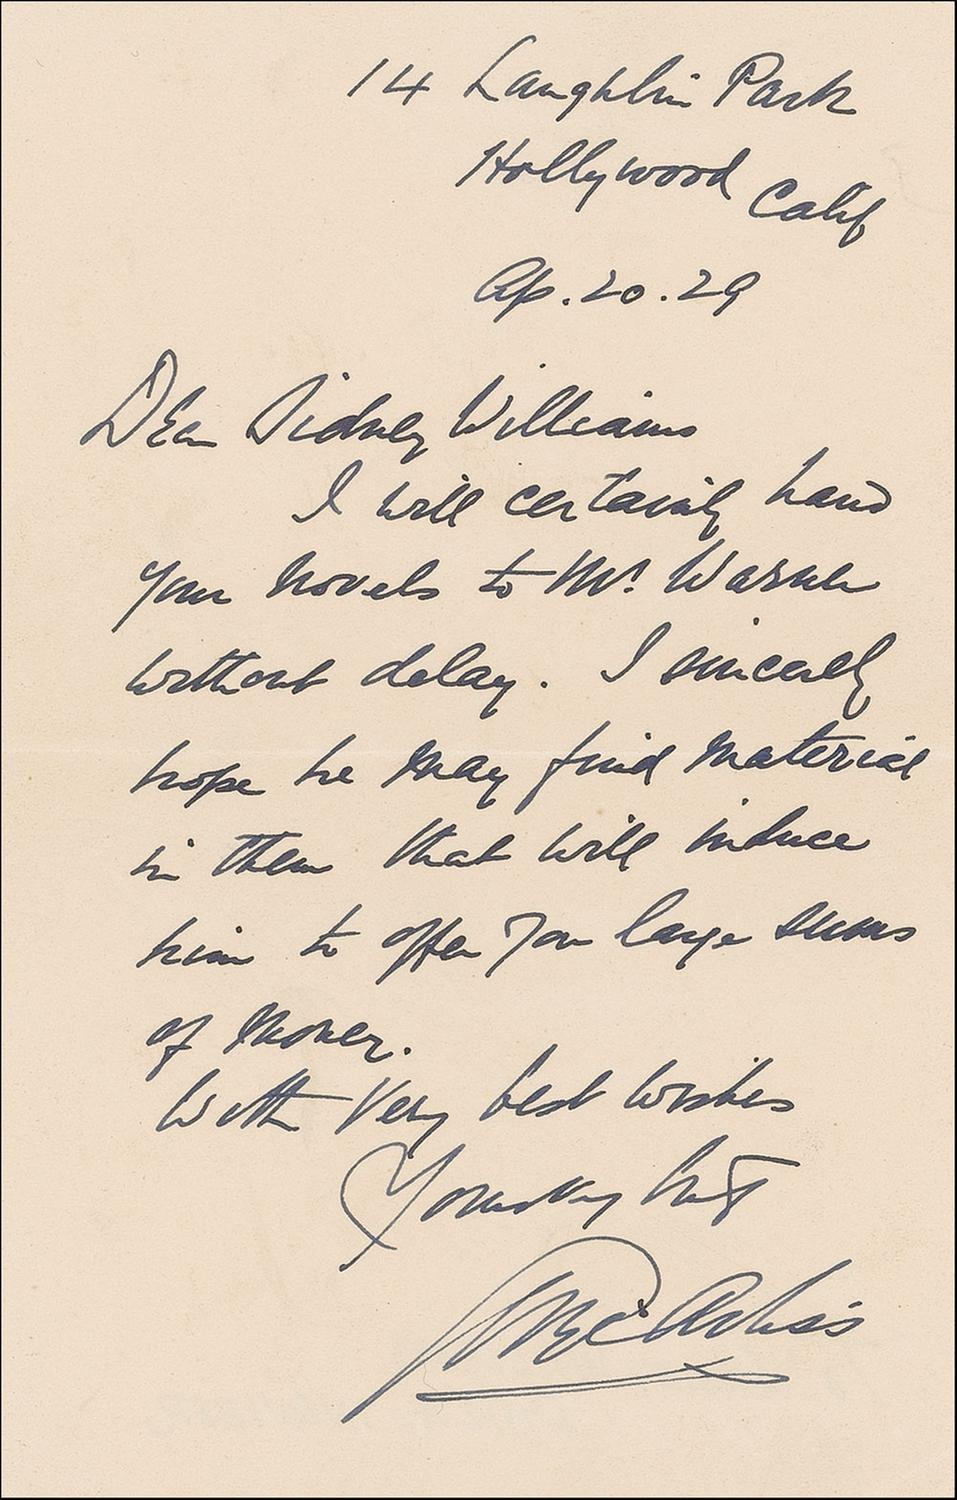 14 Laughlin Park
Hollywood Calif
Ap. 20. 29
Dear Sidney Williams
I will certainly hand
your novels to Mr. Warner
without delay. I sincerely
hope he may find material
in them that will induce
him to offer you large sums
of money.
With very best wishes
Yours very truly
Arliss